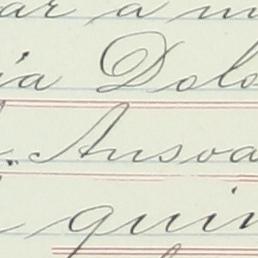 ar a m
ia Dolo
Ansoa
quin